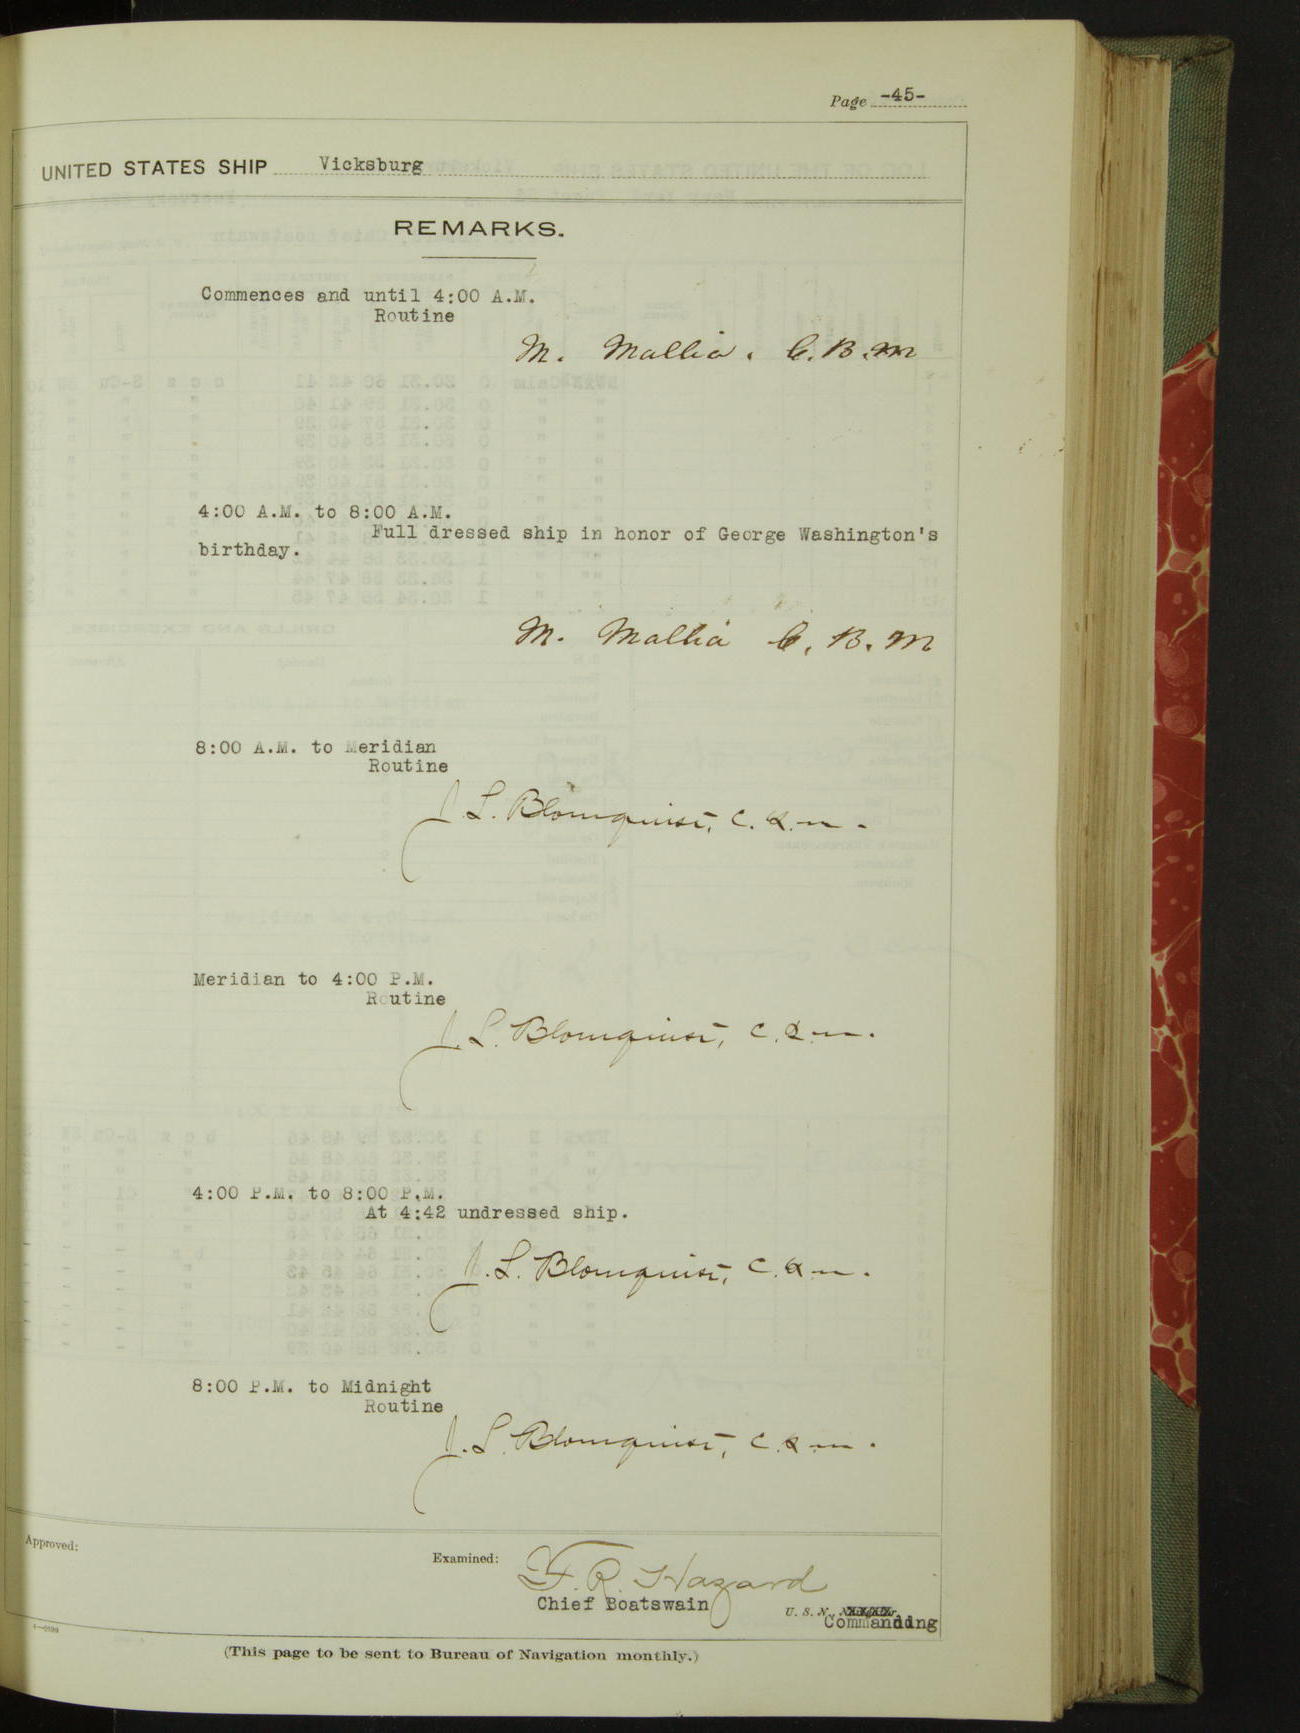 Page -45-
UNITED STATES SHIP Vicksburg
REMARKS.
Commences and until 4:00 A.M.
Routine
M. Mallia. C.B.M
4:00 A.M. to 8:00 A.M.
Full dressed ship in honor of George Washington's
birthday.
M. Mallia C.B.M
8:00 A.M. to Meridian
Routine
J.L. Blomquist, C.G.M.
Meridian to 4:00 P.M.
Routine
J.L. Blomquist, C.G.M.
4:00 P.M. to 8:00 P.M.
At 4:42 undressed ship.
J.L. Blomquist, C.G.M.
8:00 P.M. to Midnight
Routine
J.L. Blomquist, C.G.M.
Approved:
Examined:
F.R. Hazard
Chief Boatswain
U. S. N.,
Commanding
(This page to be sent to Bureau of Navigation monthly.)